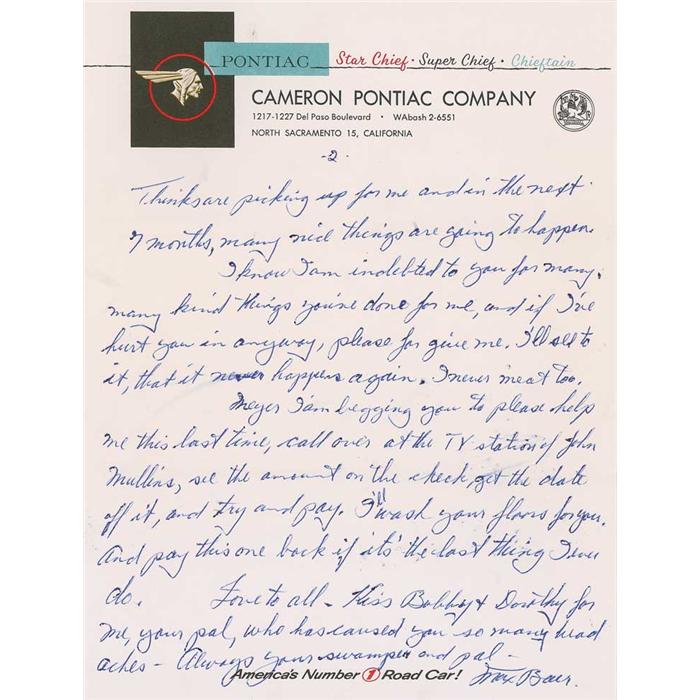 PONTIAC Star Chief • Super Chief • Chieftain
CAMERON PONTIAC COMPANY
1217-1227 Del Paso Boulevard • WAbash 2-6551
NORTH SACRAMENTO 15, CALIFORNIA
-2-
Thinks are picking up for me and in the next
7 months, many nice things are going to happen.
I know I am indebted to you for many,
many kind things you've done for me, and if I've
hurt you in anyway, please forgive me. I'll see to
it, that it never happens again. I never meat too.
Meyer I am begging you to please help
me this last time, call over at the TV station of John
Mullins, see the amount on the check, get the date
off it, and try and pay. I'll wash your floors for you.
And pay this one back if its' the last thing I ever
do. Love to all - Kiss Bobby & Dorothy for
me, your pal, who has caused you so many head
aches - Always your swamper and pal -
Max Baer.
America's Number 1 Road Car!